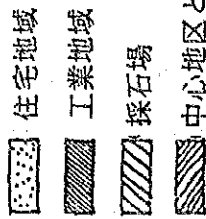 住宅地域
工業地域
採石場
中心地区と